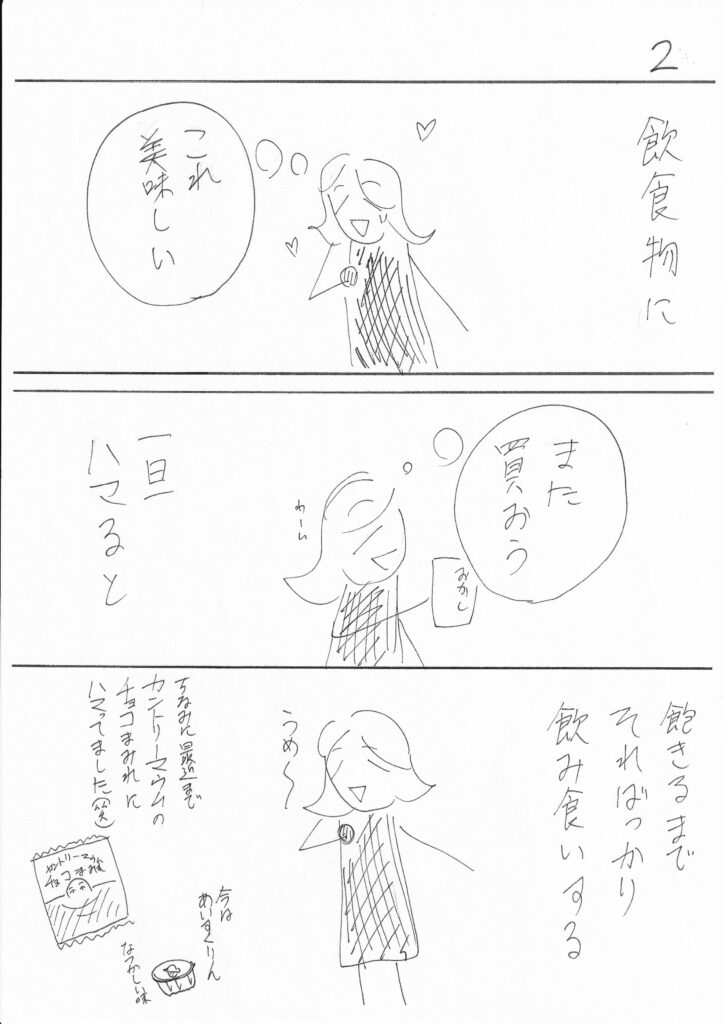 2
飲食物に
これ
美味しい
また
買おう
みかし
わーい
一旦
ハマると
飽きるまで
そればっかり
飲み食いする
うめ〜
ちなみに最近まで
カントリーマウムの
チョコまみれに
ハマってました(笑)
カントリーマアム
チョコまみれ
今は
あいすくりん
なつかしい味